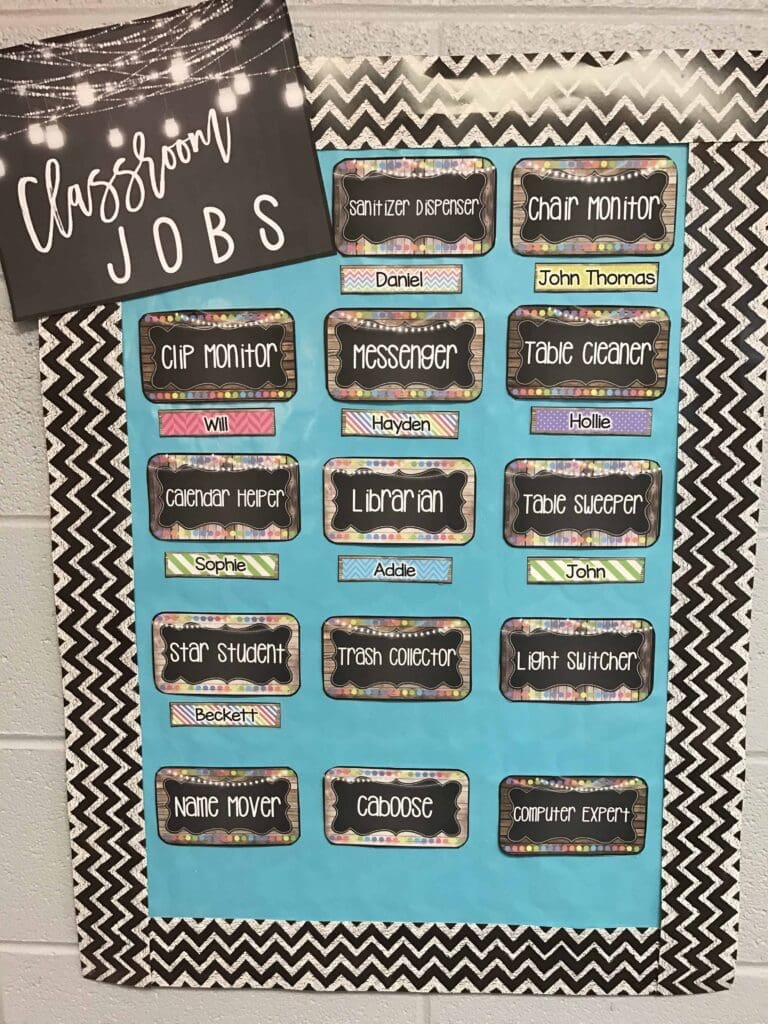 Classroom
JOBS
Sanitizer Dispenser
Chair Monitor
Daniel
John Thomas
Clip Monitor
Messenger
Table Cleaner
Will
Hayden
Hollie
Calendar Helper
Librarian
Table Sweeper
Sophie
Addie
John
Star Student
Trash Collector
Light Switcher
Beckett
Name Mover
Caboose
Computer Expert